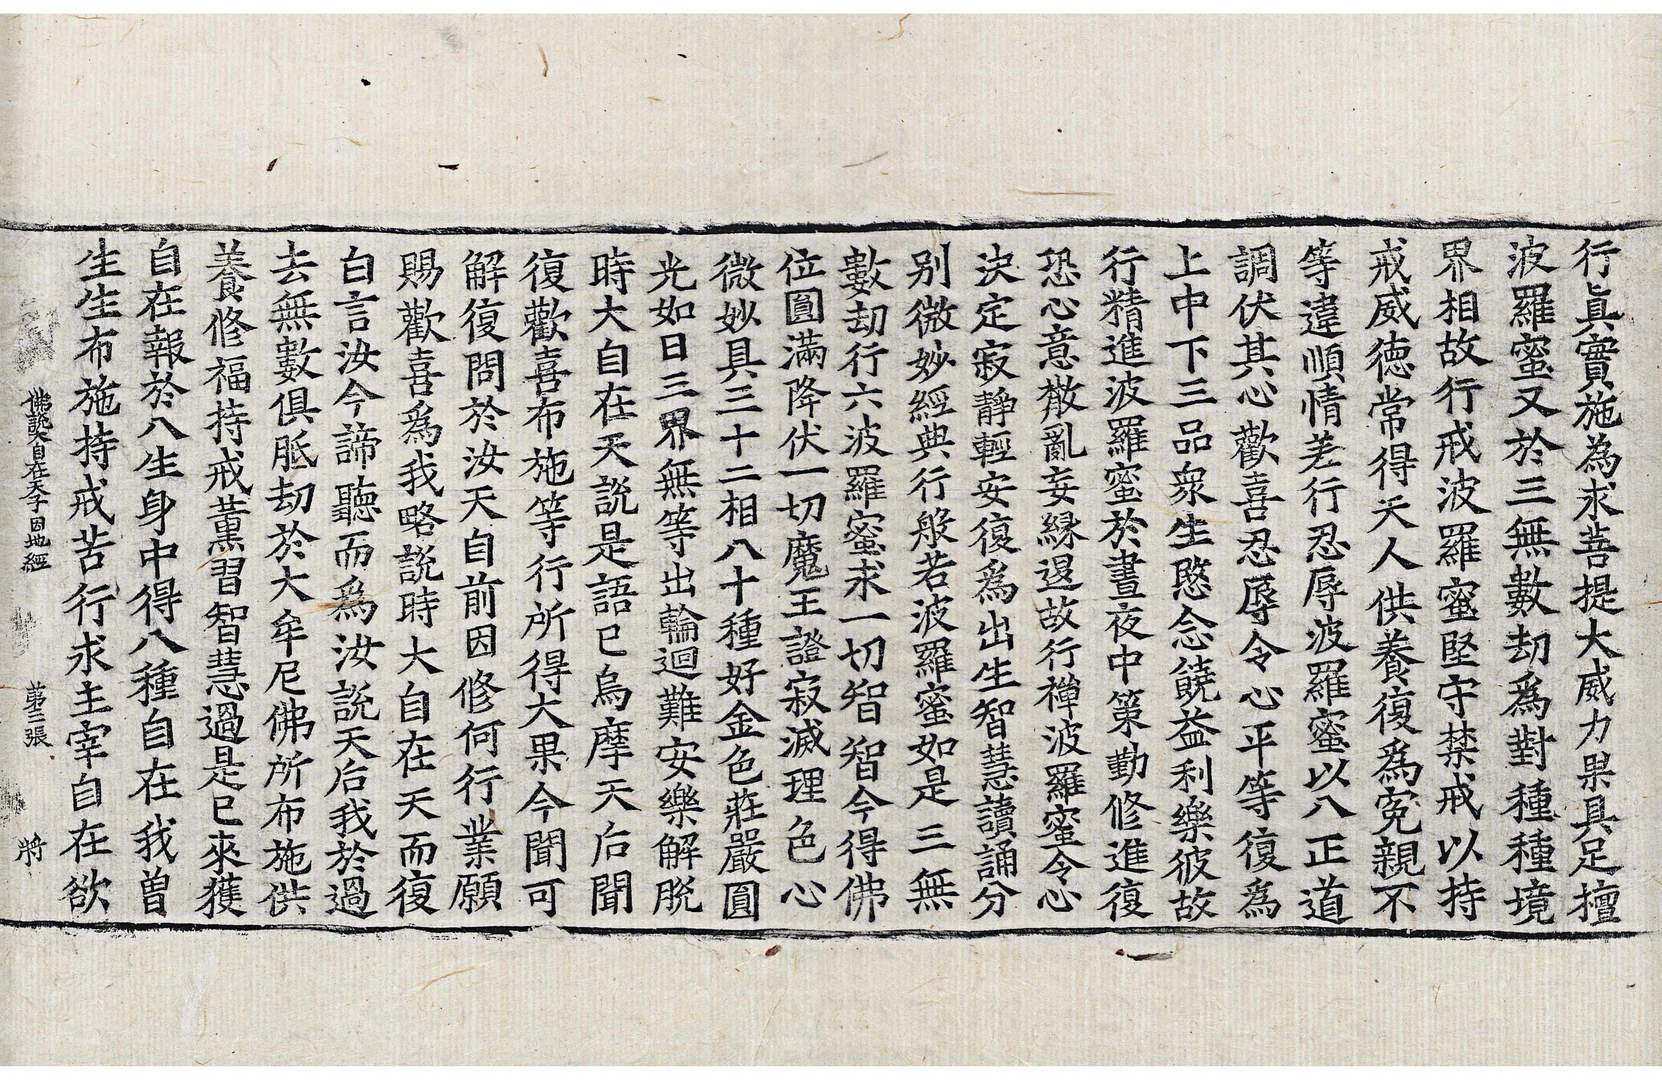 行眞實施為求菩提大威力果具足檀
波羅蜜又於三無數劫爲對種種境
界相故行戒波羅蜜堅守禁戒以持
戒威德常得天人供養復爲寃親不
等違順情差行忍辱波羅蜜以八正道
調伏其心歡喜忍辱令心平等復爲
上中下三品衆生愍念饒益利樂彼故
行精進波羅蜜於晝夜中策勤修進復
恐心意散亂妄緣退故行禪波羅蜜令心
決定寂靜輕安復爲出生智慧讀誦分
别微妙經典行般若波羅蜜如是三無
數劫行六波羅蜜求一切智智今得佛
位圓滿降伏一切魔王證寂滅理色心
微妙具三十二相八十種好金色莊嚴圓
光如日三界無等出輪迴難安樂解脫
時大自在天說是語已烏摩天后聞
復歡喜布施等行所得大果今聞可
解復問於汝天自前因修何行業願
賜歡喜爲我略說時大自在天而復
白言汝今諦聽而爲汝說天后我於過
去無數俱胝劫於大牟尼佛所布施供
養修福持戒薰習智慧過是已來獲
自在報於八生身中得八種自在我曾
生生布施持戒苦行求主宰自在欲
佛說自在天子因地經 第三張 將